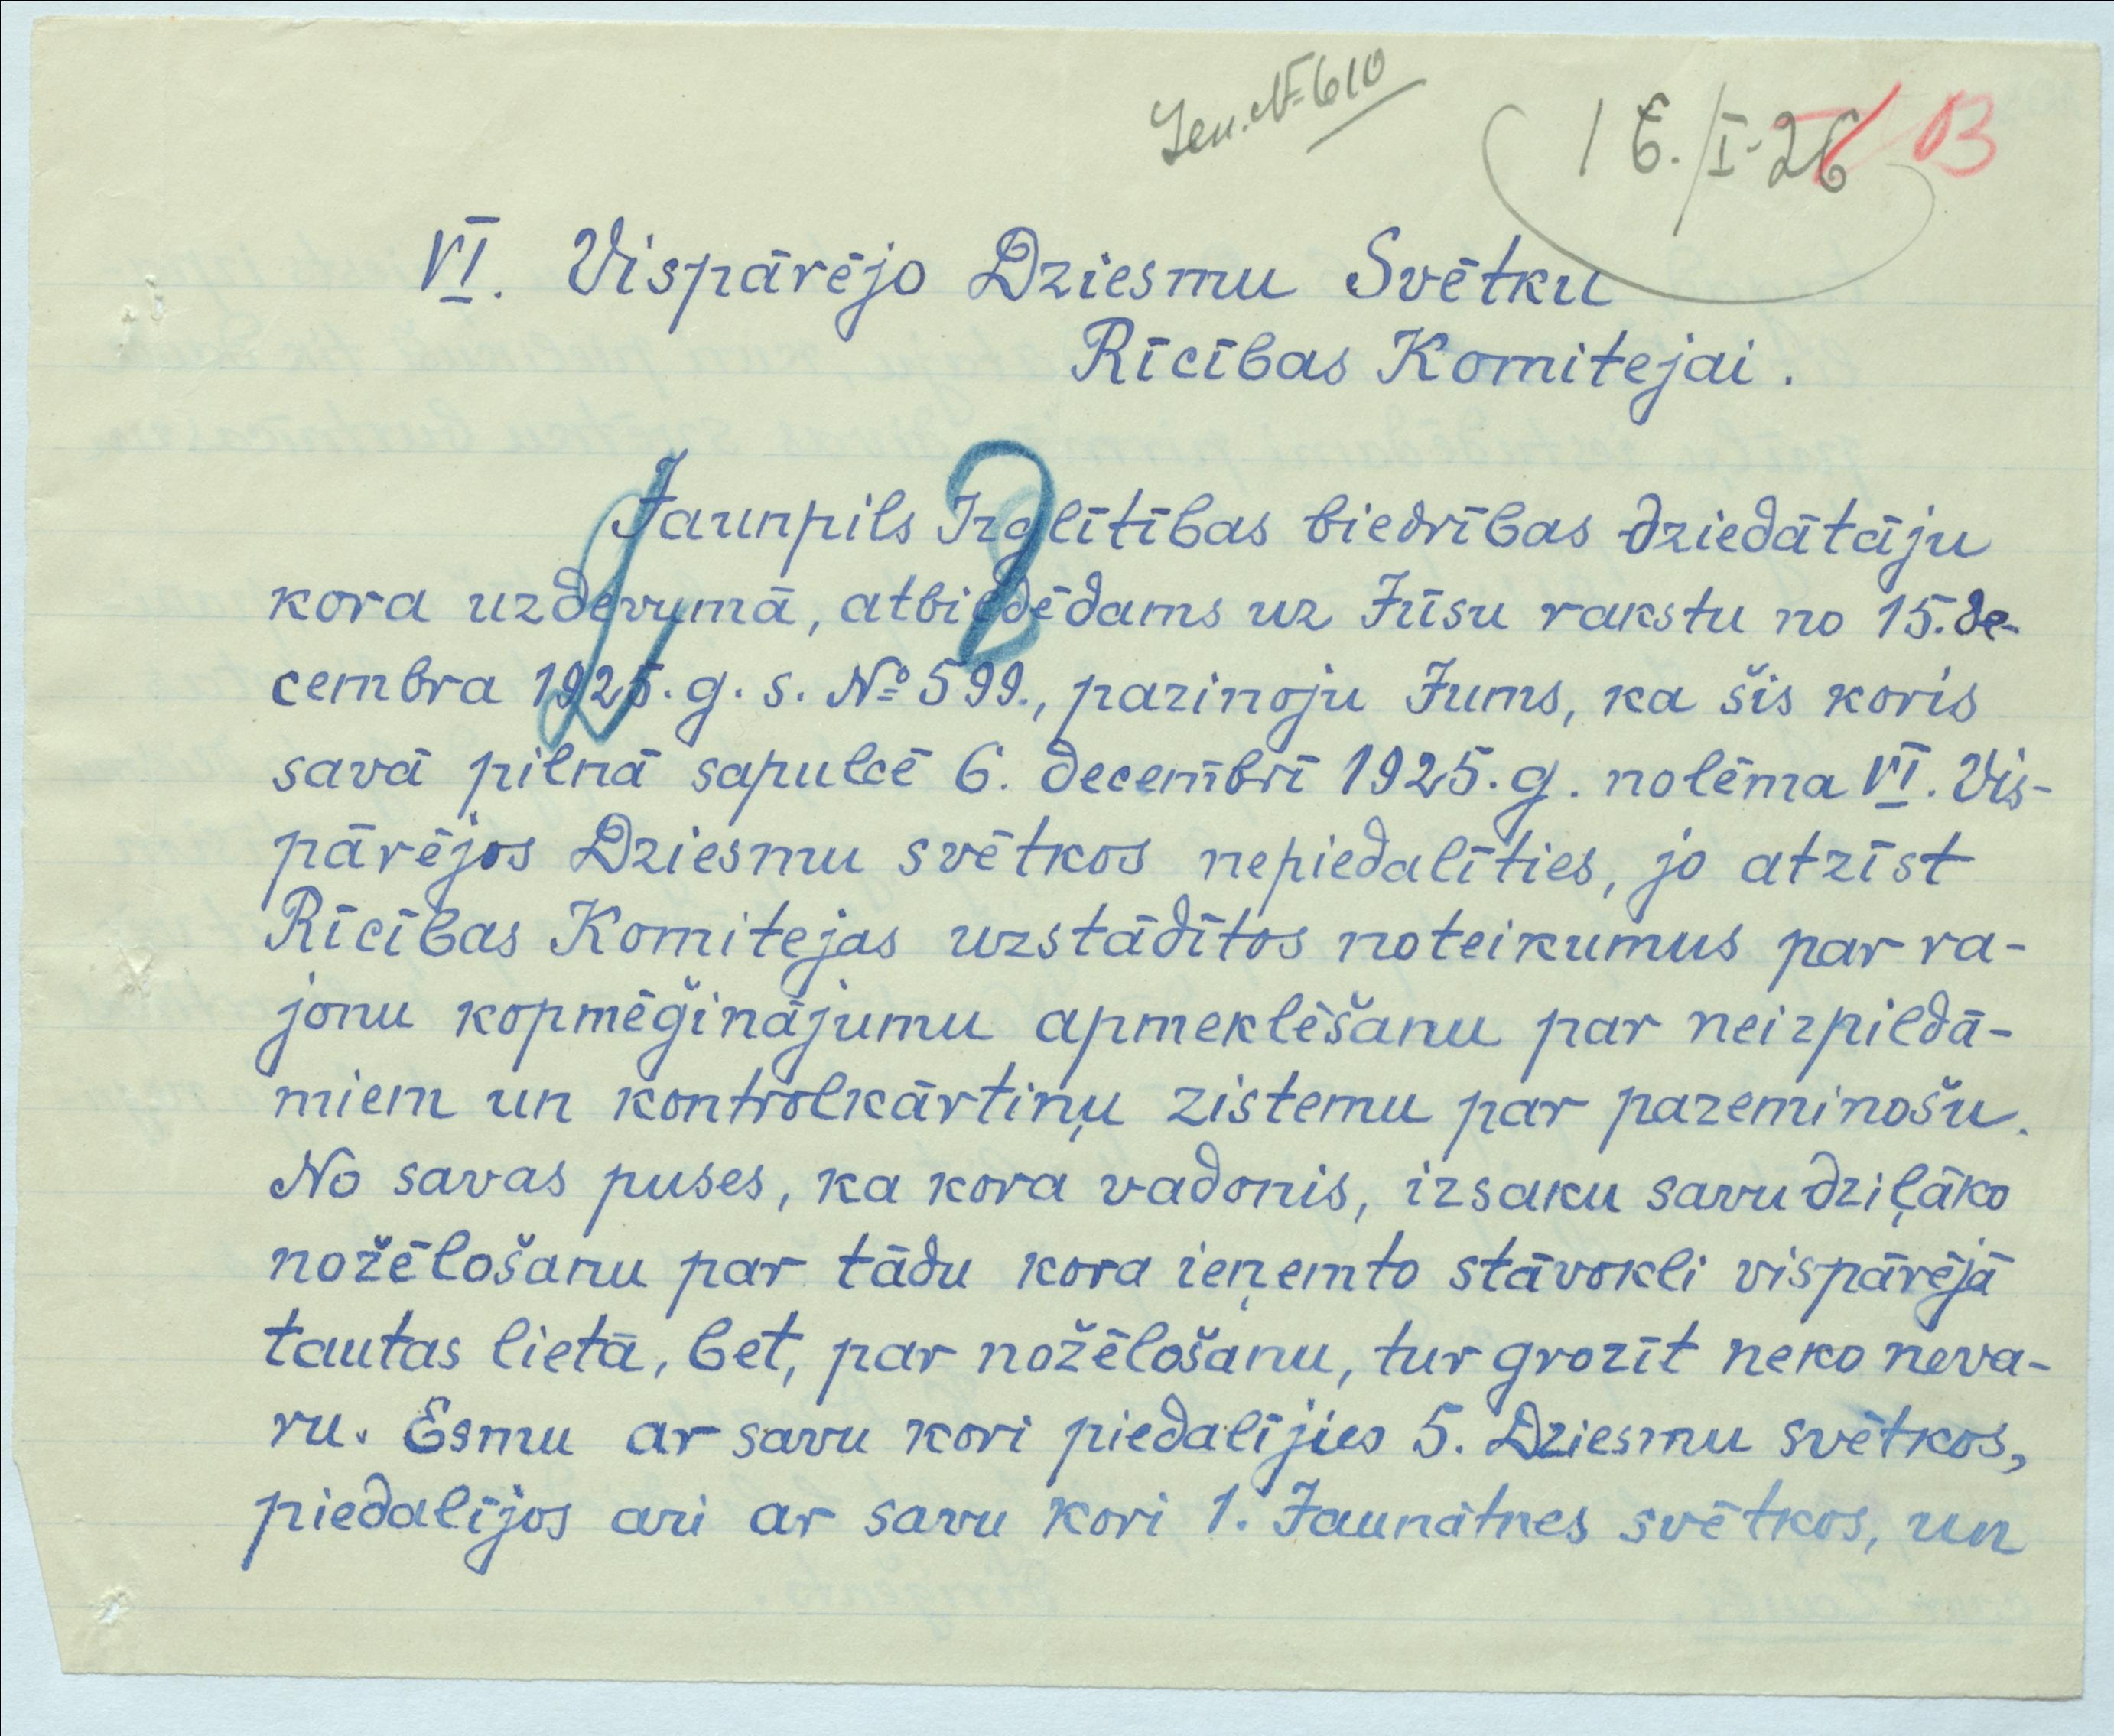 Ien. № 610
16./I-26 B
VI. Vispārējo Dziesmu Svētku
Rīcības Komitejai.
Jaunpils Izglītības biedrības dziedātāju
kora uzdevumā, atbildēdams uz Jūsu rakstu no 15. de-
cembra 1925. g. s. № 599., pazinoju Jums, ka šis koris
savā pilnā sapulcē 6. decembrī 1925. g. nolēma VI. Vis-
pārējos Dziesmu svētkos nepiedalīties, jo atzīst
Rīcības Komitejas uzstādītos noteikumus par ra-
jonu kopmēģinājumu apmeklēšanu par neizpildā-
miem un kontrolkārtiņu zistemu par pazeminošu.
No savas puses, ka kora vadonis, izsaku savu dziļāko
nožēlošanu par tādu kora ieņemto stāvokli vispārējā
tautas lietā, bet, par nožēlošanu, tur grozīt neko neva-
ru. Esmu ar savu kori piedalījies 5. Dziesmu svētkos,
piedalījos ari ar savu kori 1. Jaunātnes svētkos, un